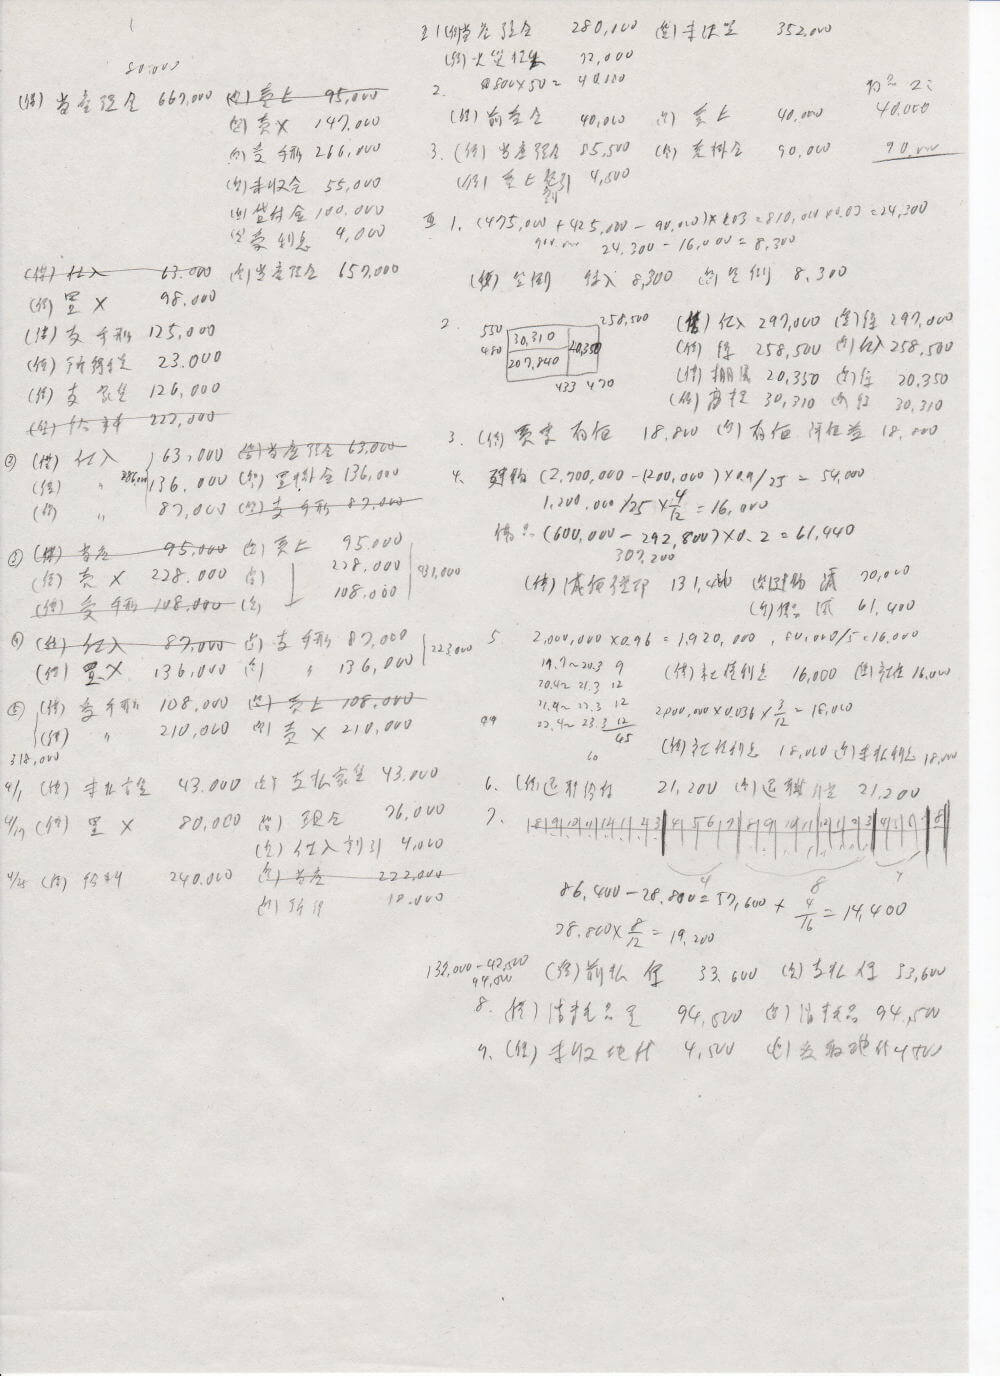 80,000
(借) 当座預金 667,000 (貸) 売上 95,000
(貸) 売× 147,000
(貸) 受 手形 266,000
(貸) 未収金 55,000
(貸) 貸付金 100,000
(貸) 受 利息 4,000
(借) 仕入 63,000 (貸) 当座預金 657,000
(借) 買× 98,000
(借) 支 手形 125,000
(借) 所得税 23,000
(借) 支 家賃 126,000
(借) 給料 222,000
② (借) 仕入 63,000 (貸) 当座預金 63,000
(借) 〃 136,000 (貸) 買掛金 136,000
(借) 〃 87,000 (貸) 支 手形 87,000
③ (借) 当座 95,000 (貸) 売上 95,000
(借) 売× 228,000 (貸) 228,000
(借) 受 手形 108,000 (貸) 108,000
431,000
④ (借) 仕入 87,000 (貸) 支 手形 87,000
(借) 買× 136,000 (貸) 〃 136,000
223,000
⑤ (借) 受 手形 108,000 (貸) 売上 108,000
(借) 〃 210,000 (貸) 売× 210,000
318,000
4/1 (借) 未払家賃 43,000 (貸) 支払家賃 43,000
(借) 買× 80,000 (貸) 現金 76,000
(貸) 仕入割引 4,000
4/25 (借) 給料 240,000 (貸) 当座 222,000
(貸) 所得 18,000
1 (借) 当座預金 280,000 (貸) 未決算 352,000
(借) 火災損失 72,000
2. @800×50= 40,000
(借) 前受金 40,000 (貸) 売上 40,000
40,000
3. (借) 当座預金 85,500 (貸) 売掛金 90,000
90,000
(借) 売上割引 4,500
1. (475,000 + 425,000 - 90,000)×0.03=810,000×0.03=24,300
24,300 - 16,000 = 8,300
(借) 貸倒 繰入 8,300 (貸) 貸倒 8,300
2. 550 258,500
30,310
480 20,350
207,840
433 470
(借) 仕入 297,000 (貸) 繰 297,000
(借) 繰 258,500 (貸) 仕入 258,500
(借) 棚減 20,350 (貸) 繰 20,350
(借) 商評 30,310 (貸) 繰 30,310
3. (借) 売買 有価 18,800 (貸) 有価 評価差 18,800
4. 建物 (2,700,000 - 1200,000)×0.9/25 = 54,000
1,200,000/25 × 4/12 = 16,000
備品 (600,000 - 292,800)×0.2 = 61,440
307,200
(借) 減価償却 (貸) 建物 減 70,000
(貸) 備品 減 61,400
5 2,000,000×0.96 = 1,920,000, 80,000/5=16,000
19.7~20.3 9
20.4~21.3 12
21.4~22.3 12
22.4~23.3 12
45
60
(借) 社債利息 16,000 (貸) 社債 16,000
2,000,000×0.036×3/12=18,000
(借) 社債利息 18,000 (貸) 未払利息 18,000
6. (借) 退職給付 21,200 (貸) 退職引当 21,200
7.
4 8
86,400-28,800=57,600 × 4/16 = 14,400
28,800×8/12 = 19,200
(借) 前払 保 33,600 (貸) 支払 保 33,600
8. (借) 消耗品費 94,500 (貸) 消耗品 94,500
9. (借) 未収地代 4,500 (貸) 受取地代 4,500